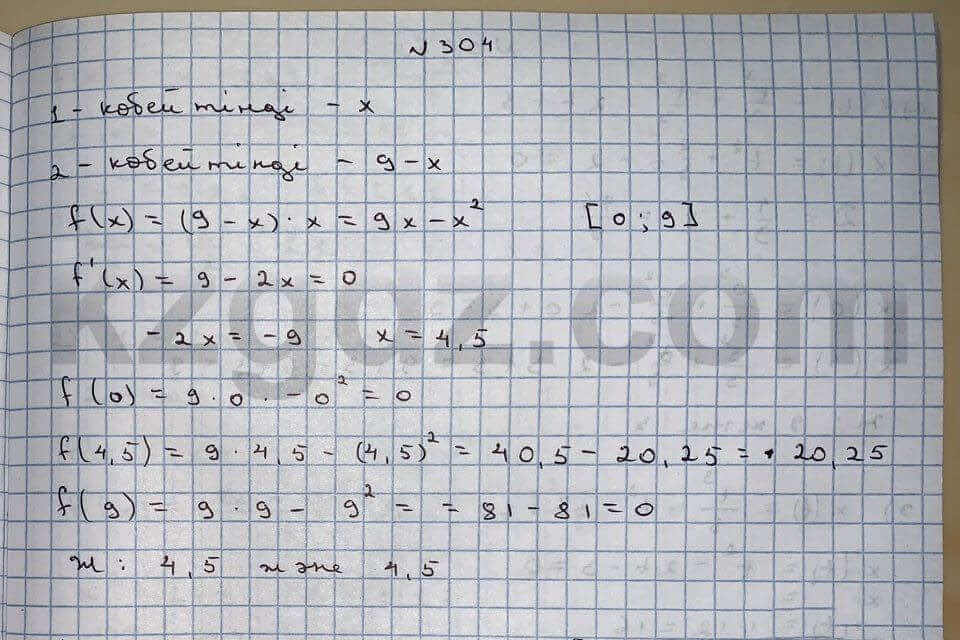 №304
1 - көбейтінді - x
2 - көбейтінді - 9 - x
f(x) = (9 - x) · x = 9x - x² [0; 9]
f'(x) = 9 - 2x = 0
-2x = -9 x = 4,5
f(0) = 9 · 0 · - 0² = 0
f(4,5) = 9 · 4,5 - (4,5)² = 40,5 - 20,25 = · 20,25
f(9) = 9 · 9 - 9² = = 81 - 81 = 0
Ж: 4,5 және 4,5
kzgdz.com